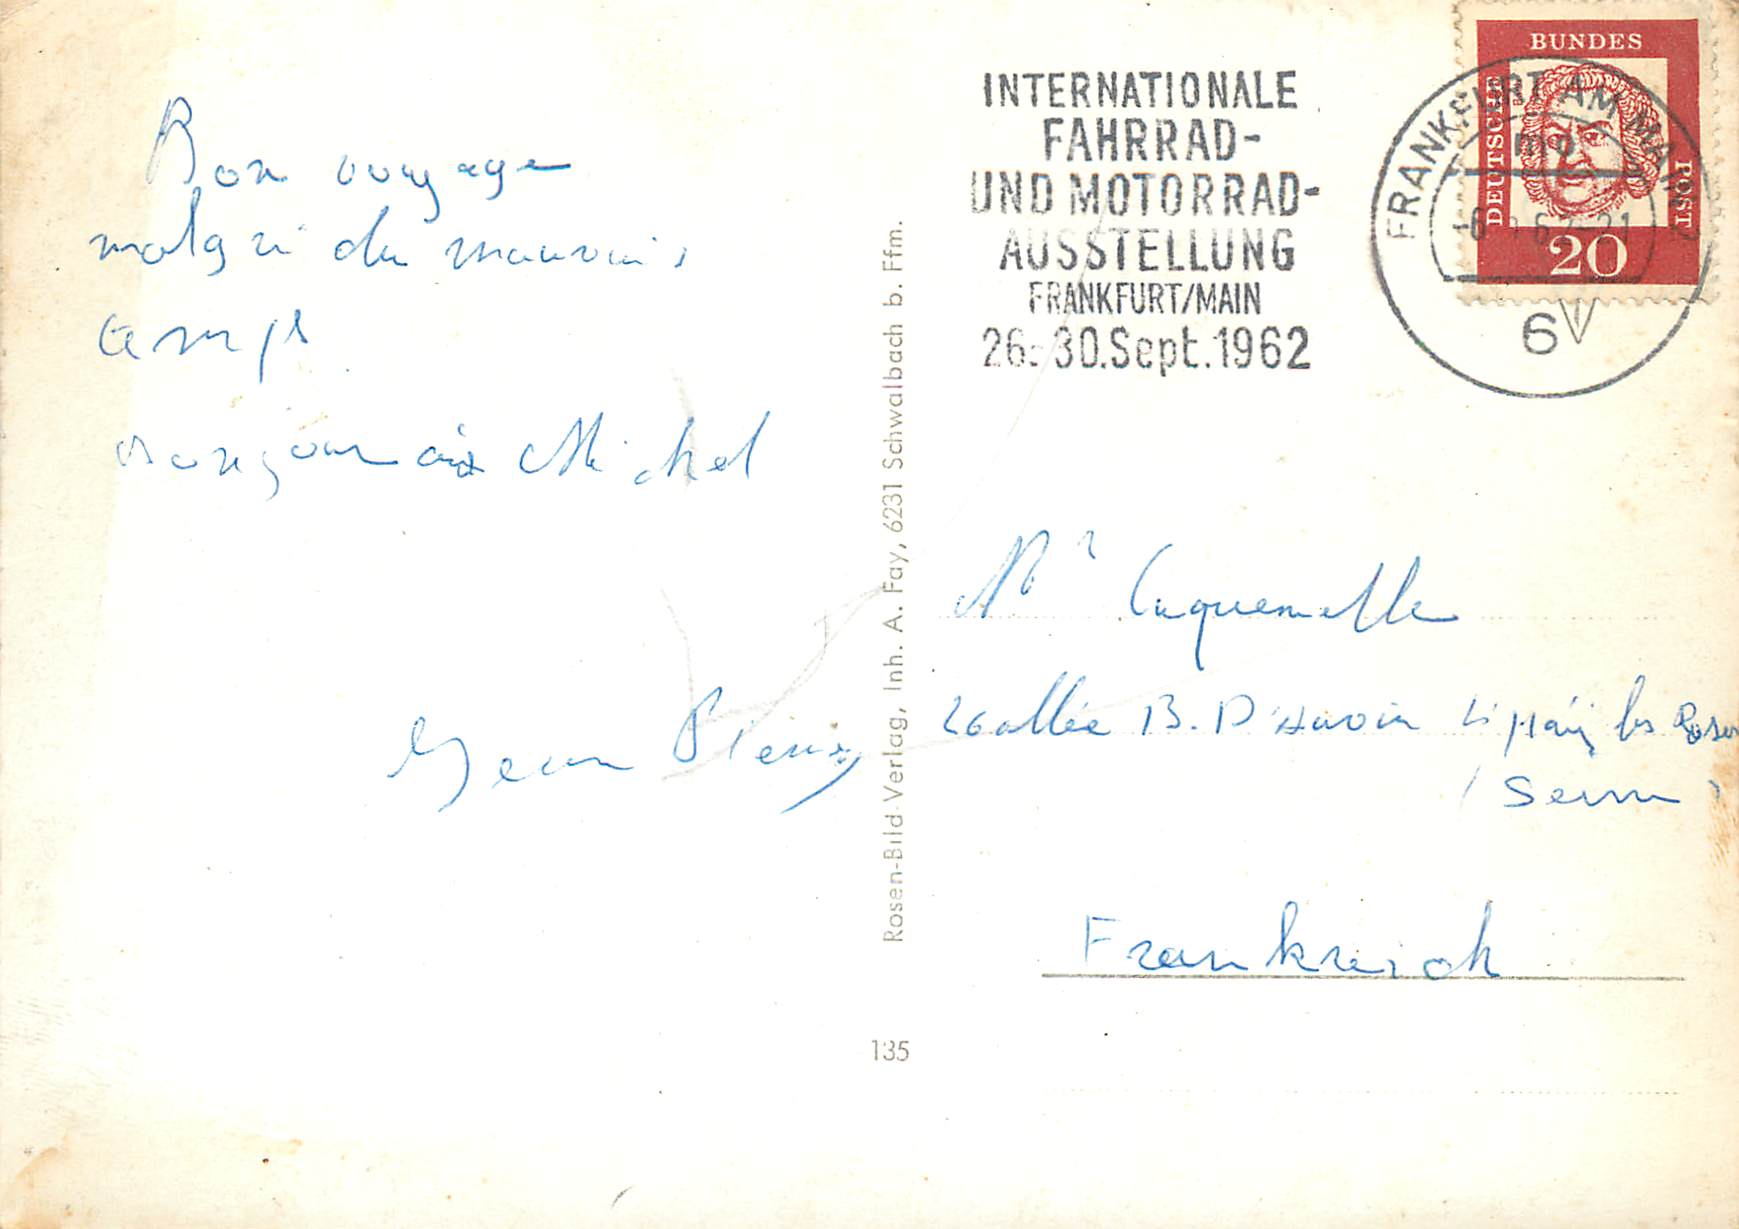 Bon voyage
malgré du mauvais
temps
Bonjour à Michel
Jean Pierre
Rosen-Bild-Verlag, Inh. A. Fay, 6231 Schwalbach b. Ffm.
135
INTERNATIONALE
FAHRRAD-
UND MOTORRAD-
AUSSTELLUNG
FRANKFURT/MAIN
26.-30.Sept.1962
FRANKFURT AM MAIN
6
BUNDES
DEUTSCHE
POST
20
Mr
allée B. D'
les Roses
(Seine)
Frankreich